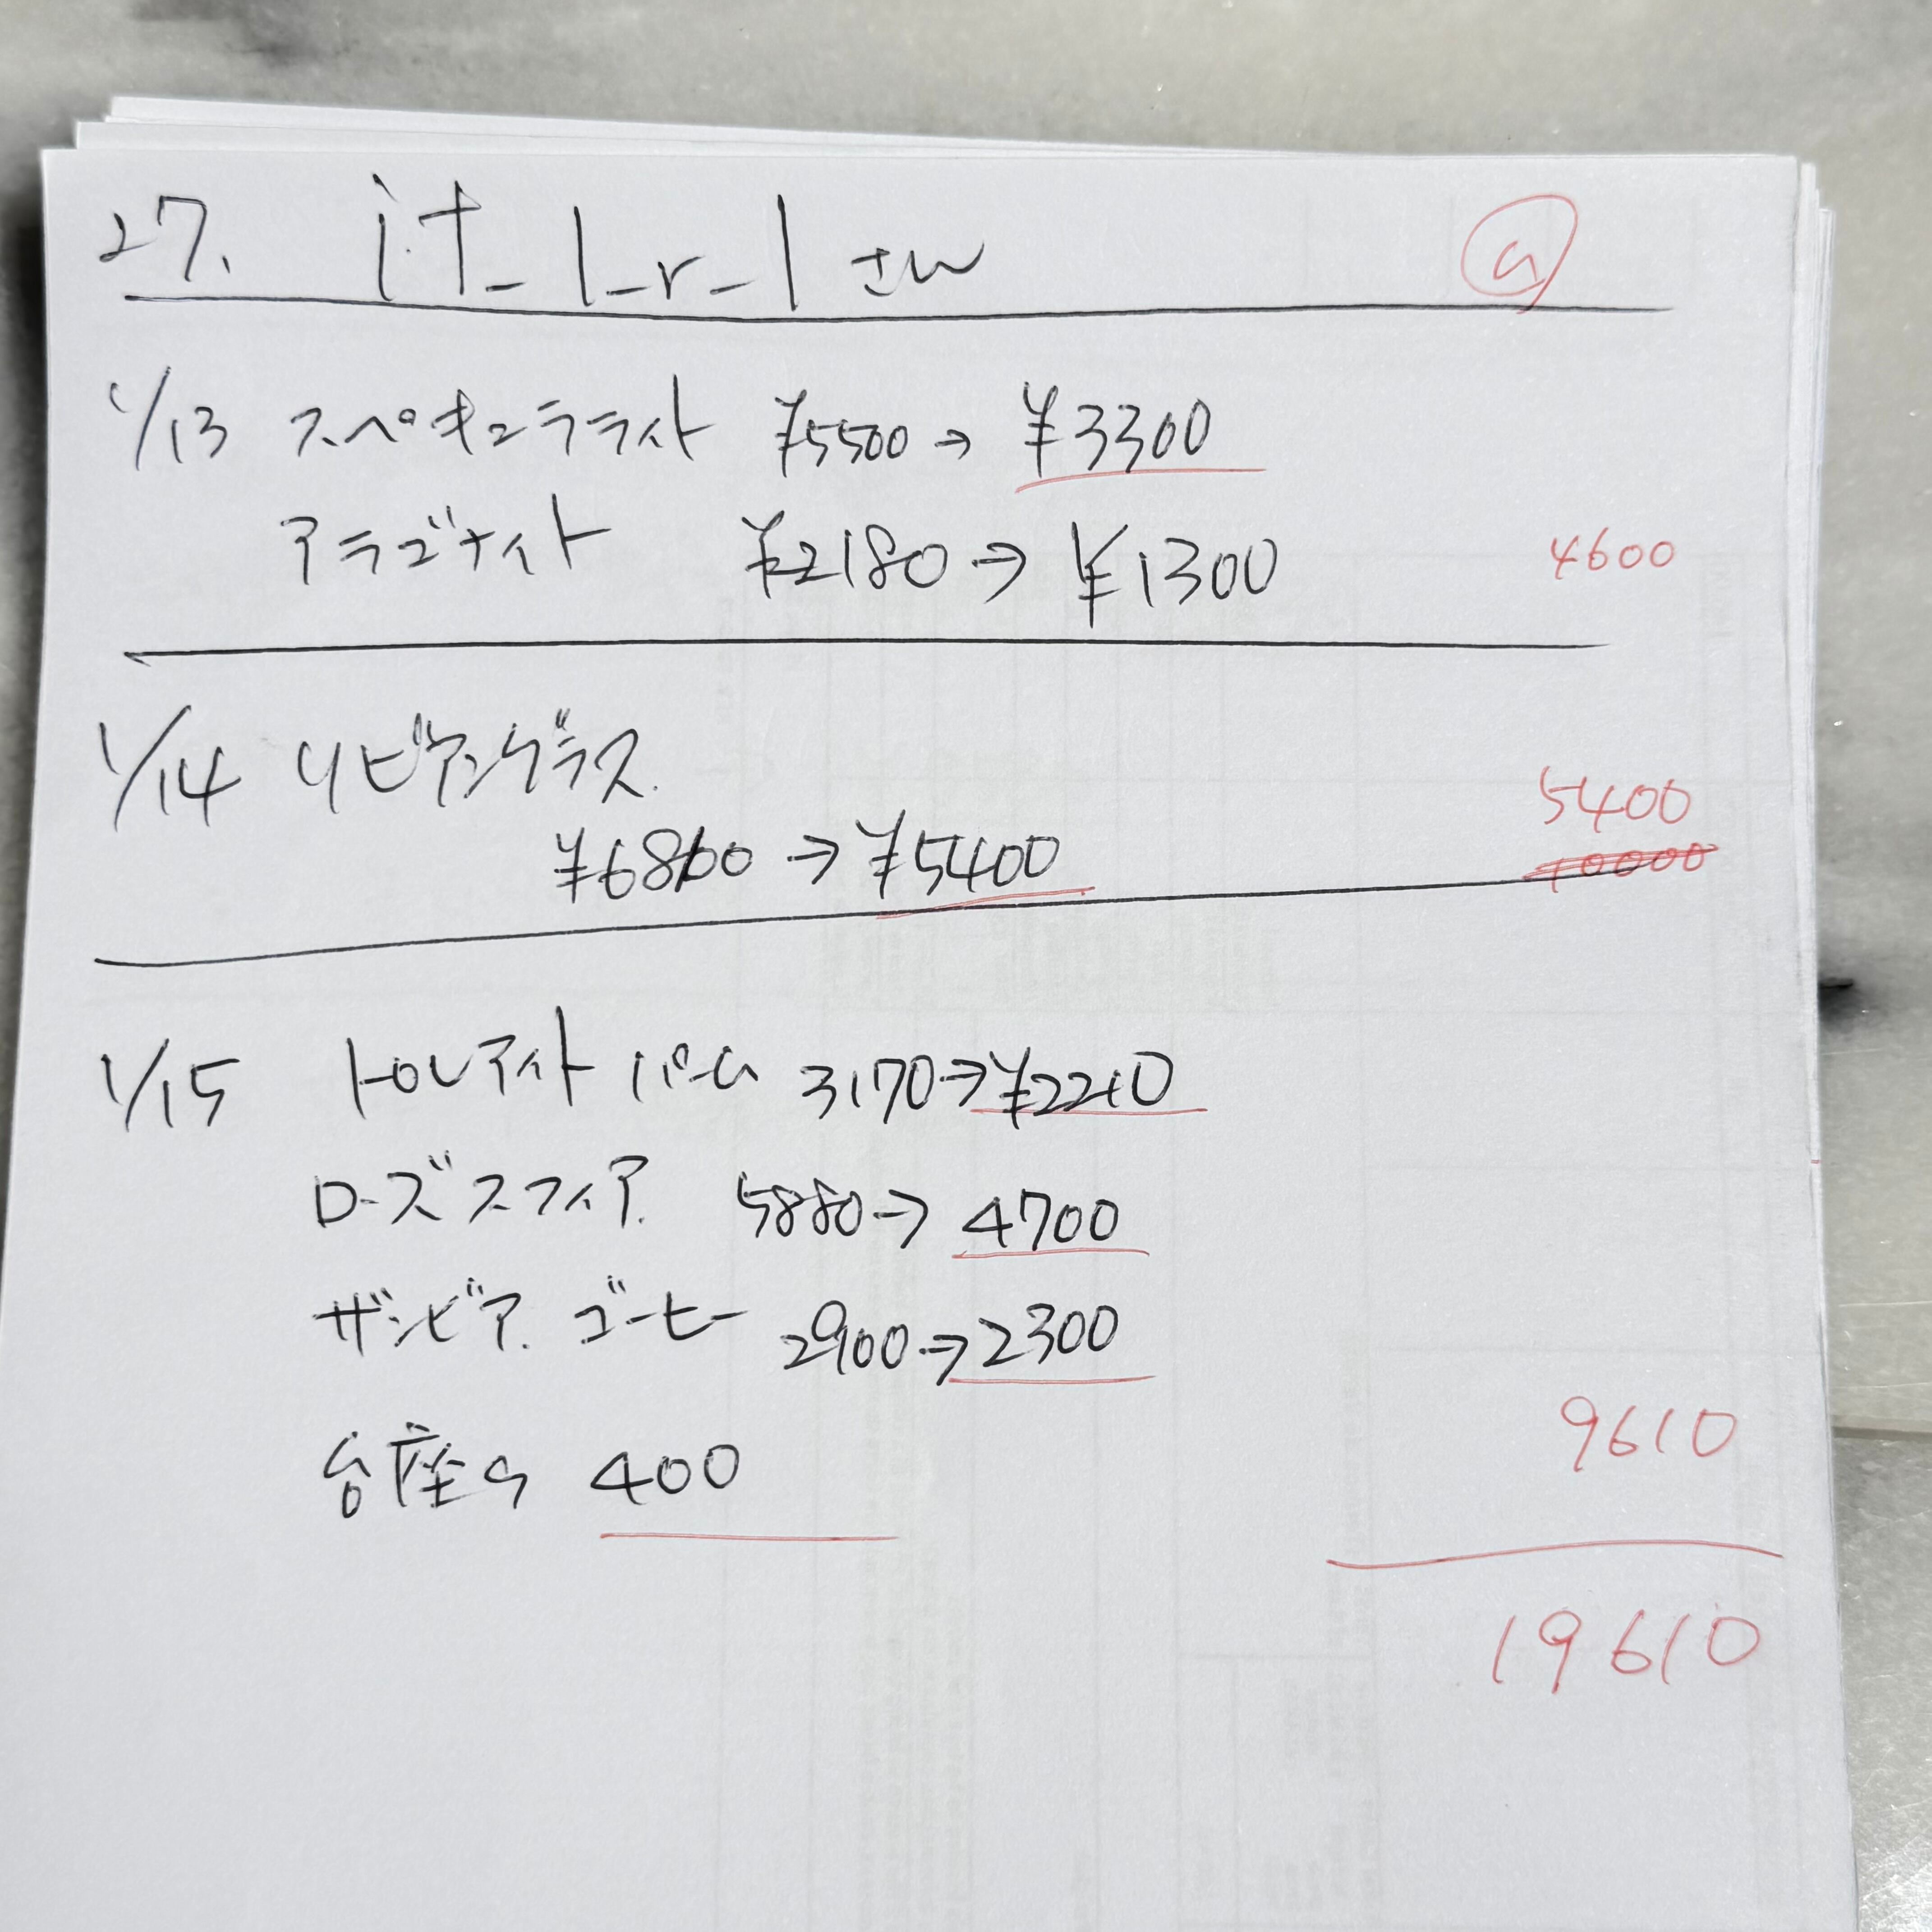 27. it_l_r_l さん
1/13 スペキュラライト ¥5500→ ¥3300
アラゴナイト ¥2180→ ¥1300 4600
1/14 リビアングラス
5400
¥6860→¥5400 10000
1/15 トロレアイト パーム 3170→¥2210
ローズスフィア 5880→ 4700
ザンビア ゴーヒー 2900→2300
9610
台座 400
19610